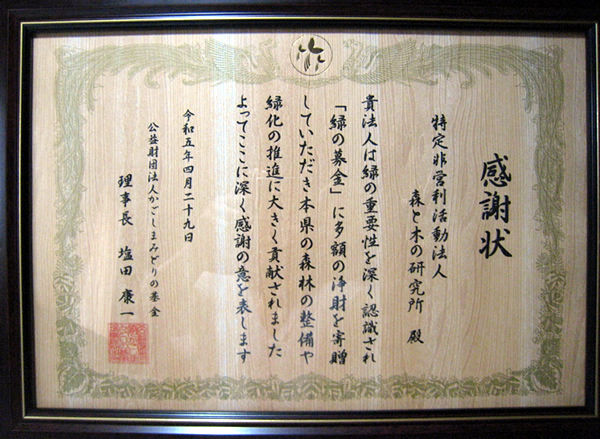 感謝状
特定非営利活動法人
森と木の研究所 殿
貴法人は緑の重要性を深く認識され
「緑の募金」に多額の浄財を寄贈
していただき本県の森林の整備や
緑化の推進に大きく貢献されました
よってここに深く感謝の意を表します
令和五年四月二十九日
公益財団法人かごしまみどりの基金
理事長 塩田 康一